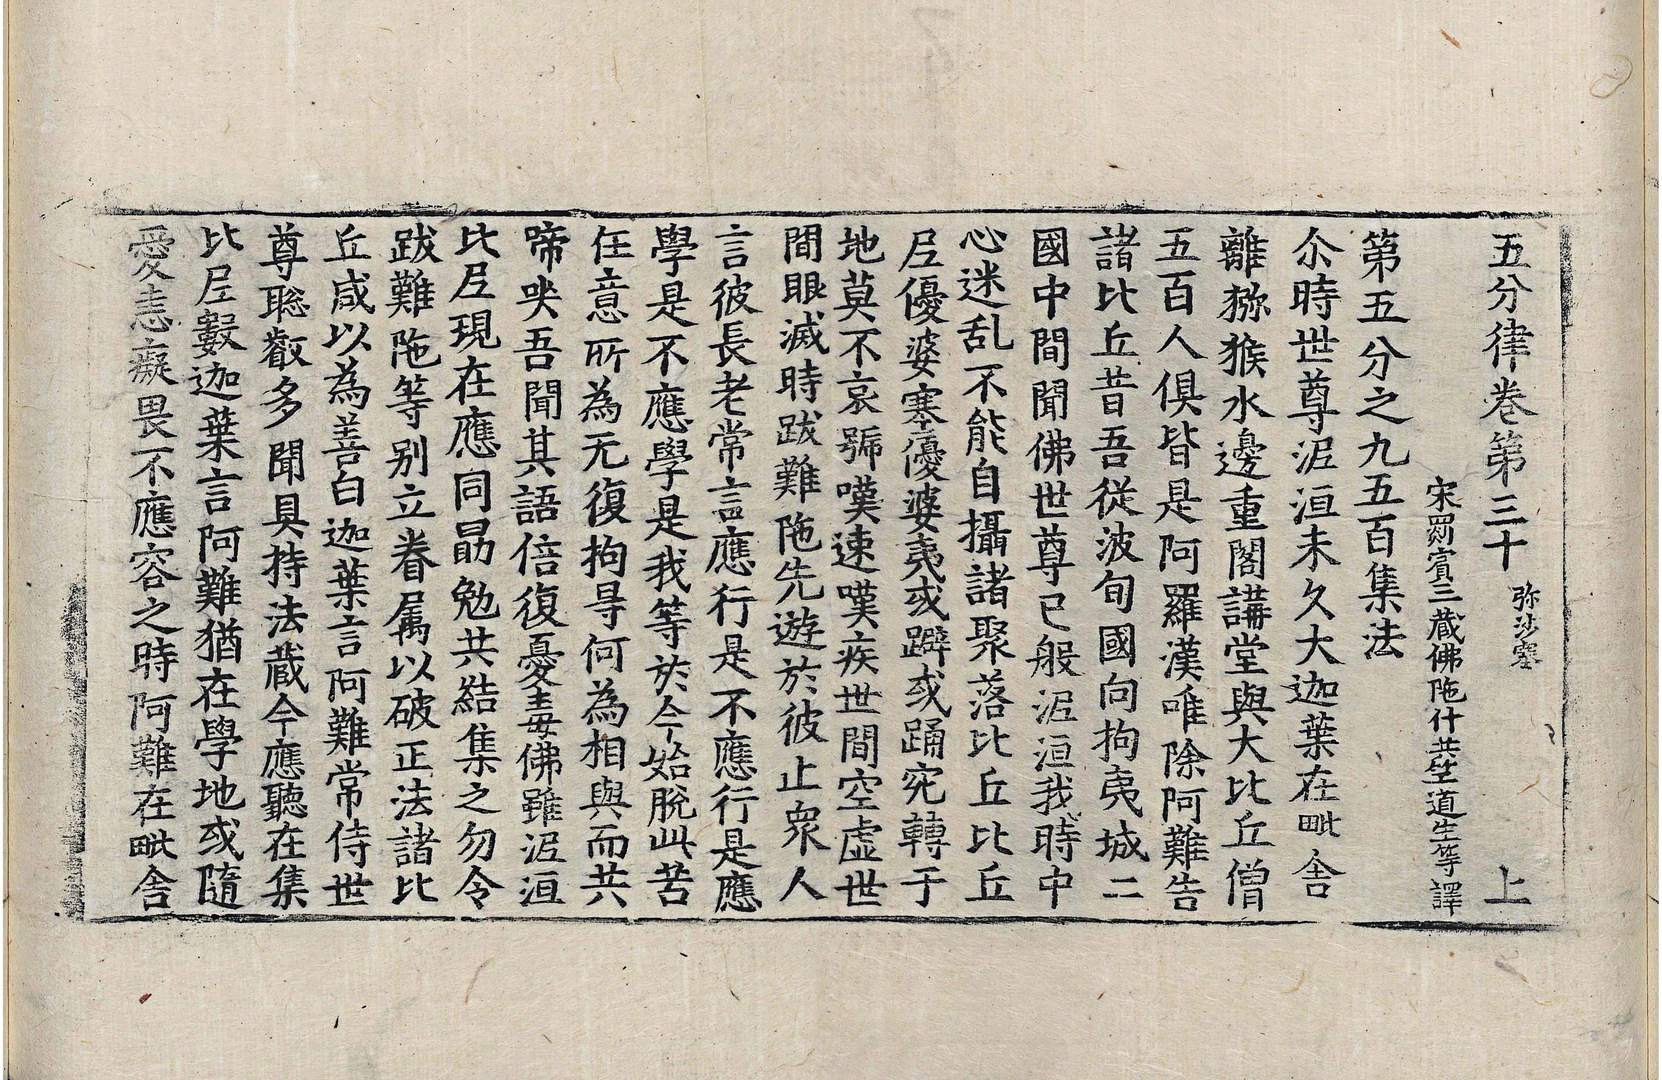 五分律卷第三十 弥沙塞 上
宋罽賓三藏佛陁什共竺道生等譯
第五分之九五百集法
尒時世尊泥洹未久大迦葉在毗舍
離獼猴水邊重閣講堂與大比丘僧
五百人俱皆是阿羅漢唯除阿難告
諸比丘昔吾從波旬國向拘夷城二
國中間聞佛世尊已般泥洹我時中
心迷乱不能自攝諸聚落比丘比丘
尼優婆塞優婆夷或躃或踊宛轉于
地莫不哀號嘆速嘆疾世間空虛世
間眼滅時跋難陁先遊於彼止衆人
言彼長老常言應行是不應行是應
學是不應學是我等於今始脫此苦
任意所為无復拘㝵何為相與而共
啼哭吾聞其語倍復憂毒佛雖泥洹
比尼現在應同勗勉共結集之勿令
跋難陁等別立眷屬以破正法諸比
丘咸以為善白迦葉言阿難常侍世
尊聡叡多聞具持法藏今應聽在集
比尼數迦葉言阿難猶在學地或隨
愛恚癡畏不應容之時阿難在毗舍